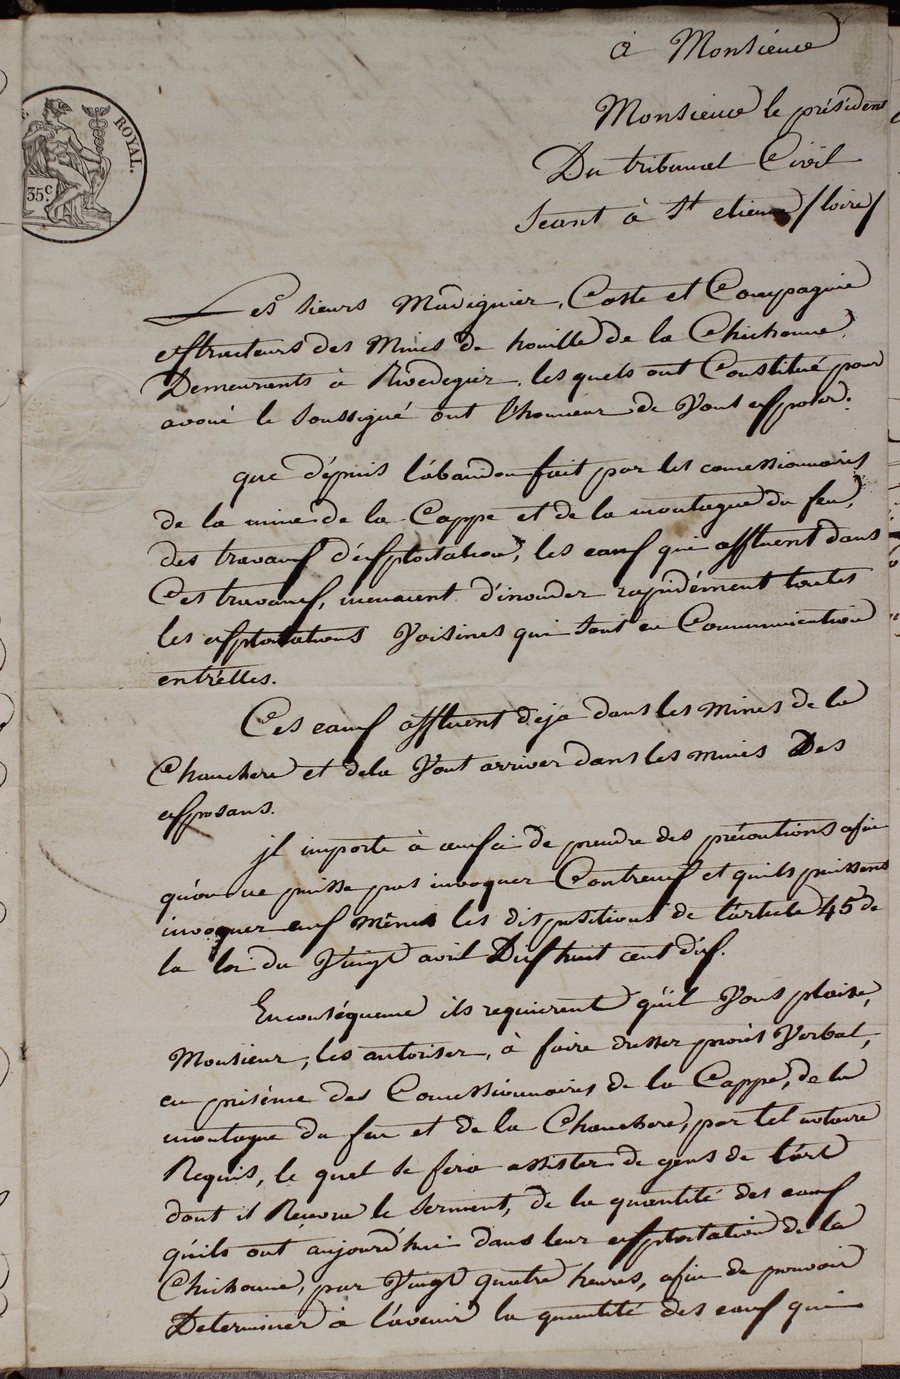 ROYAL.
35c.
à Monsieur
Monsieur le président
Du tribunal Civil
Seant à St etienne / loire /
Les sieurs Madignier, Coste et Compagnie
extracteurs des Mines de houille de la Chichonne,
Demeurents à Rivedegier, les quels ont Constitué pour
avoué le Soussigné ont l'honneur de Vous exposer.
que dépuis l'abandon fait par les concessionnaires
de la mine de la Cappe et de la montagne du feu,
des travaux d'exploitation, les eaux qui affluent dans
Ces travaux, menacent d'inonder rapidément toutes
les exploitations Voisines qui sont en Communication
entrélles.
Ces eaux affluent déja dans les mines de la
Chauchere et dela Vont arriver dans les mines Des
exposans.
jl importe à ceux ci de prendre des précautions afin
qu'on ne puisse pas invoquer Contreux et quils puissent
invoquer eux mêmes les dispositions de l'article 45 de
la loi du Vingt avril Dix huit cent dix.
Enconséquence ils requierent qu'il Vous plaise,
Monsieur, les autoriser, à faire dresser procès Verbal,
en présence des Concessionnaires de la Cappe, de la
montagne du feu et de la Chauchere, par tel notaire
Requis, le quel se fera assister de gens de l'art
dont il Recevra le Serment, de la quantité des eaux
qu'ils ont aujourd'hui dans leur exploitation de la
Chichonne, par Vingt quatre heures, afin de pouvoir
Determiner à l'avenir la quantité des eaux qui